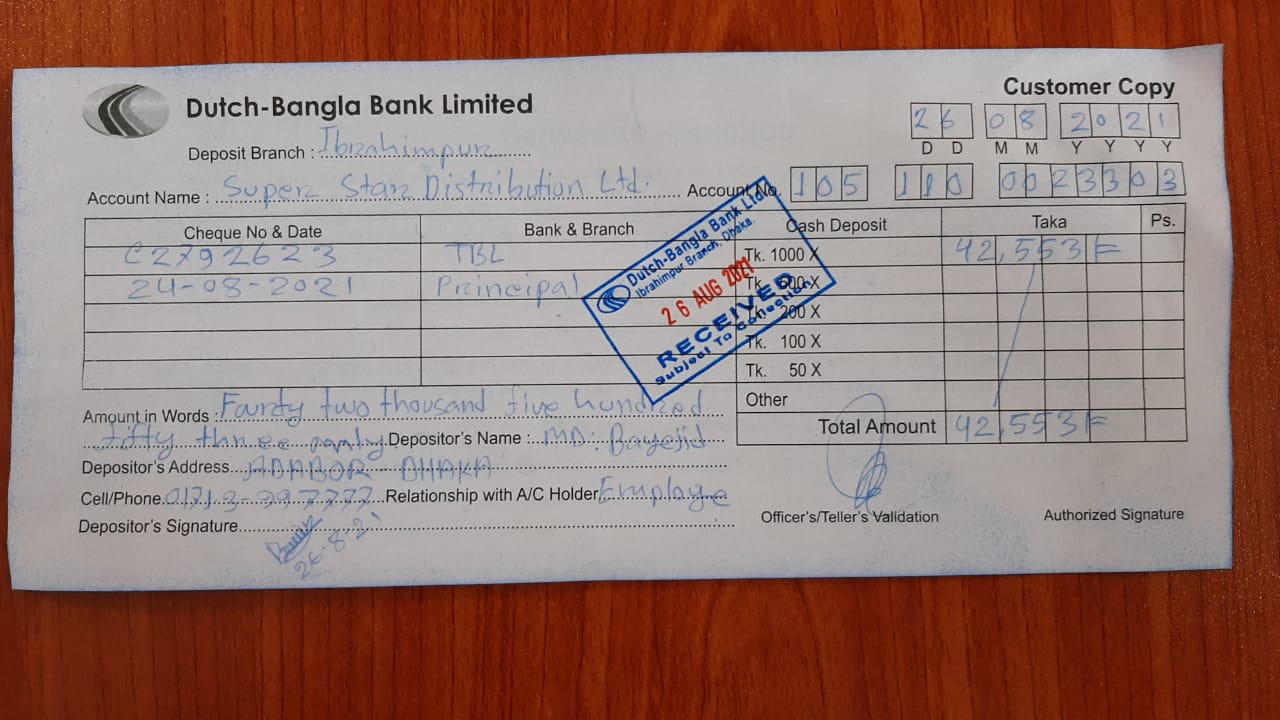 Customer Copy
Dutch-Bangla Bank Limited
26 08 2021
D D M M Y Y Y Y
Deposit Branch : Ibrahimpur
Account Name : Super Star Distribution Ltd. Account No. 105 110 0023303
Cheque No & Date Bank & Branch Cash Deposit Taka Ps.
C2792623 TBL Tk. 1000 X 42,553/=
24-08-2021 Principal Tk. 500 X
Tk. 200 X
Tk. 100 X
Tk. 50 X
Other
Dutch-Bangla Bank Ltd.
Ibrahimpur Branch, Dhaka.
26 AUG 2021
RECEIVED
Subject To Collection
Total Amount 42,553/=
Amount in Words : Fourty two thousand five hundred
fifty three only. Depositor's Name : MD: Bayejid
Depositor's Address ADABOR DHAKA
Cell/Phone. Relationship with A/C Holder Employe
Depositor's Signature
26-8-21
Officer's/Teller's Validation Authorized Signature